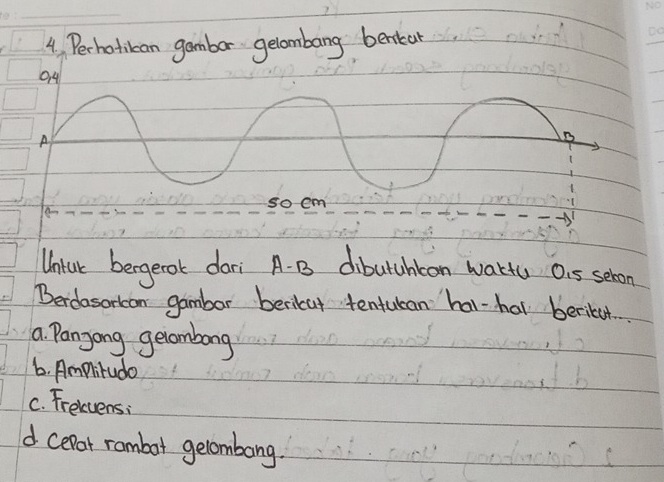 4. Perhatikan gambar gelombang berikut
0,4
A
B
50 cm
Untuk bergerak dari A-B dibutuhkan waktu 0,5 sekon
Berdasarkan gambar berikut tentukan hal-hal berikut....
a. Pangang gelombang
b. Amplitudo
c. Frekuensi
d cepat rambat gelombang.